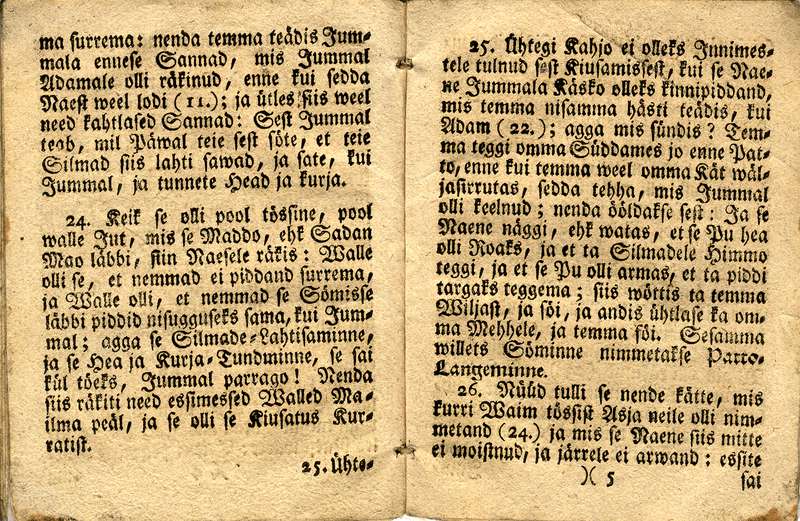 ma surrema: nenda temma teädis Jum-
mala ennese Sannad, mis Jummal
Adamale olli räkinud, enne kui sedda
Naest weel lodi (11.); ja ütles siis weel
need kahtlased Sannad: Sest Jummal
teab, mil Päwal teie sest söte, et teie
Silmad siis lahti sawad, ja sate, kui
Jummal, ja tunnete Head ja kurja.
24. Keik se olli pool tössine, pool
walle Jut, mis se Maddo, ehk Sadan
Mao läbbi, siin Naesele räkis: Walle
olli se, et nemmad ei piddand surrema,
ja Walle olli, et nemmad se Sömisse
läbbi piddid nisugguseks sama, kui Jum-
mal; agga se Silmade-Lahtisaminne,
ja se Hea ja Kurja-Tundminne, se sai
kül töeks, Jummal parrago! Nenda
siis räkiti need essimessed Walled Ma-
ilma peäl, ja se olli se Kiusatus Kur-
ratist.
25. Ühte-
25. Ühtegi Kahjo ei olleks Innimes-
tele tulnud sest Kiusamissest, kui se Nae-
ne Jummala Käsko olleks kinnipiddand,
mis temma nisamma hästi teädis, kui
Adam (22.); agga mis sündis? Tem-
ma teggi omma Süddames jo enne Pat-
to, enne kui temma weel omma Kät wäl-
jasirrutas, sedda tehha, mis Jummal
olli keelnud; nenda ööldakse sest: Ja se
Naene näggi, ehk watas, et se Pu hea
olli Roaks, ja et ta Silmadele Himmo
teggi, ja et se Pu olli armas, et ta piddi
targaks teggema; siis wöttis ta temma
Wiljast, ja söi, ja andis ühtlase ka om-
ma Mehhele, ja temma söi. Sesamma
willets Söminne nimmetakse Patto-
Langeminne.
26. Nüüd tulli se nende kätte, mis
kurri Waim tössist Asja neile olli nim-
metand (24.) ja mis se Naene siis mitte
ei moistnud, ja järrele ei arwand: essite
)( 5 sai